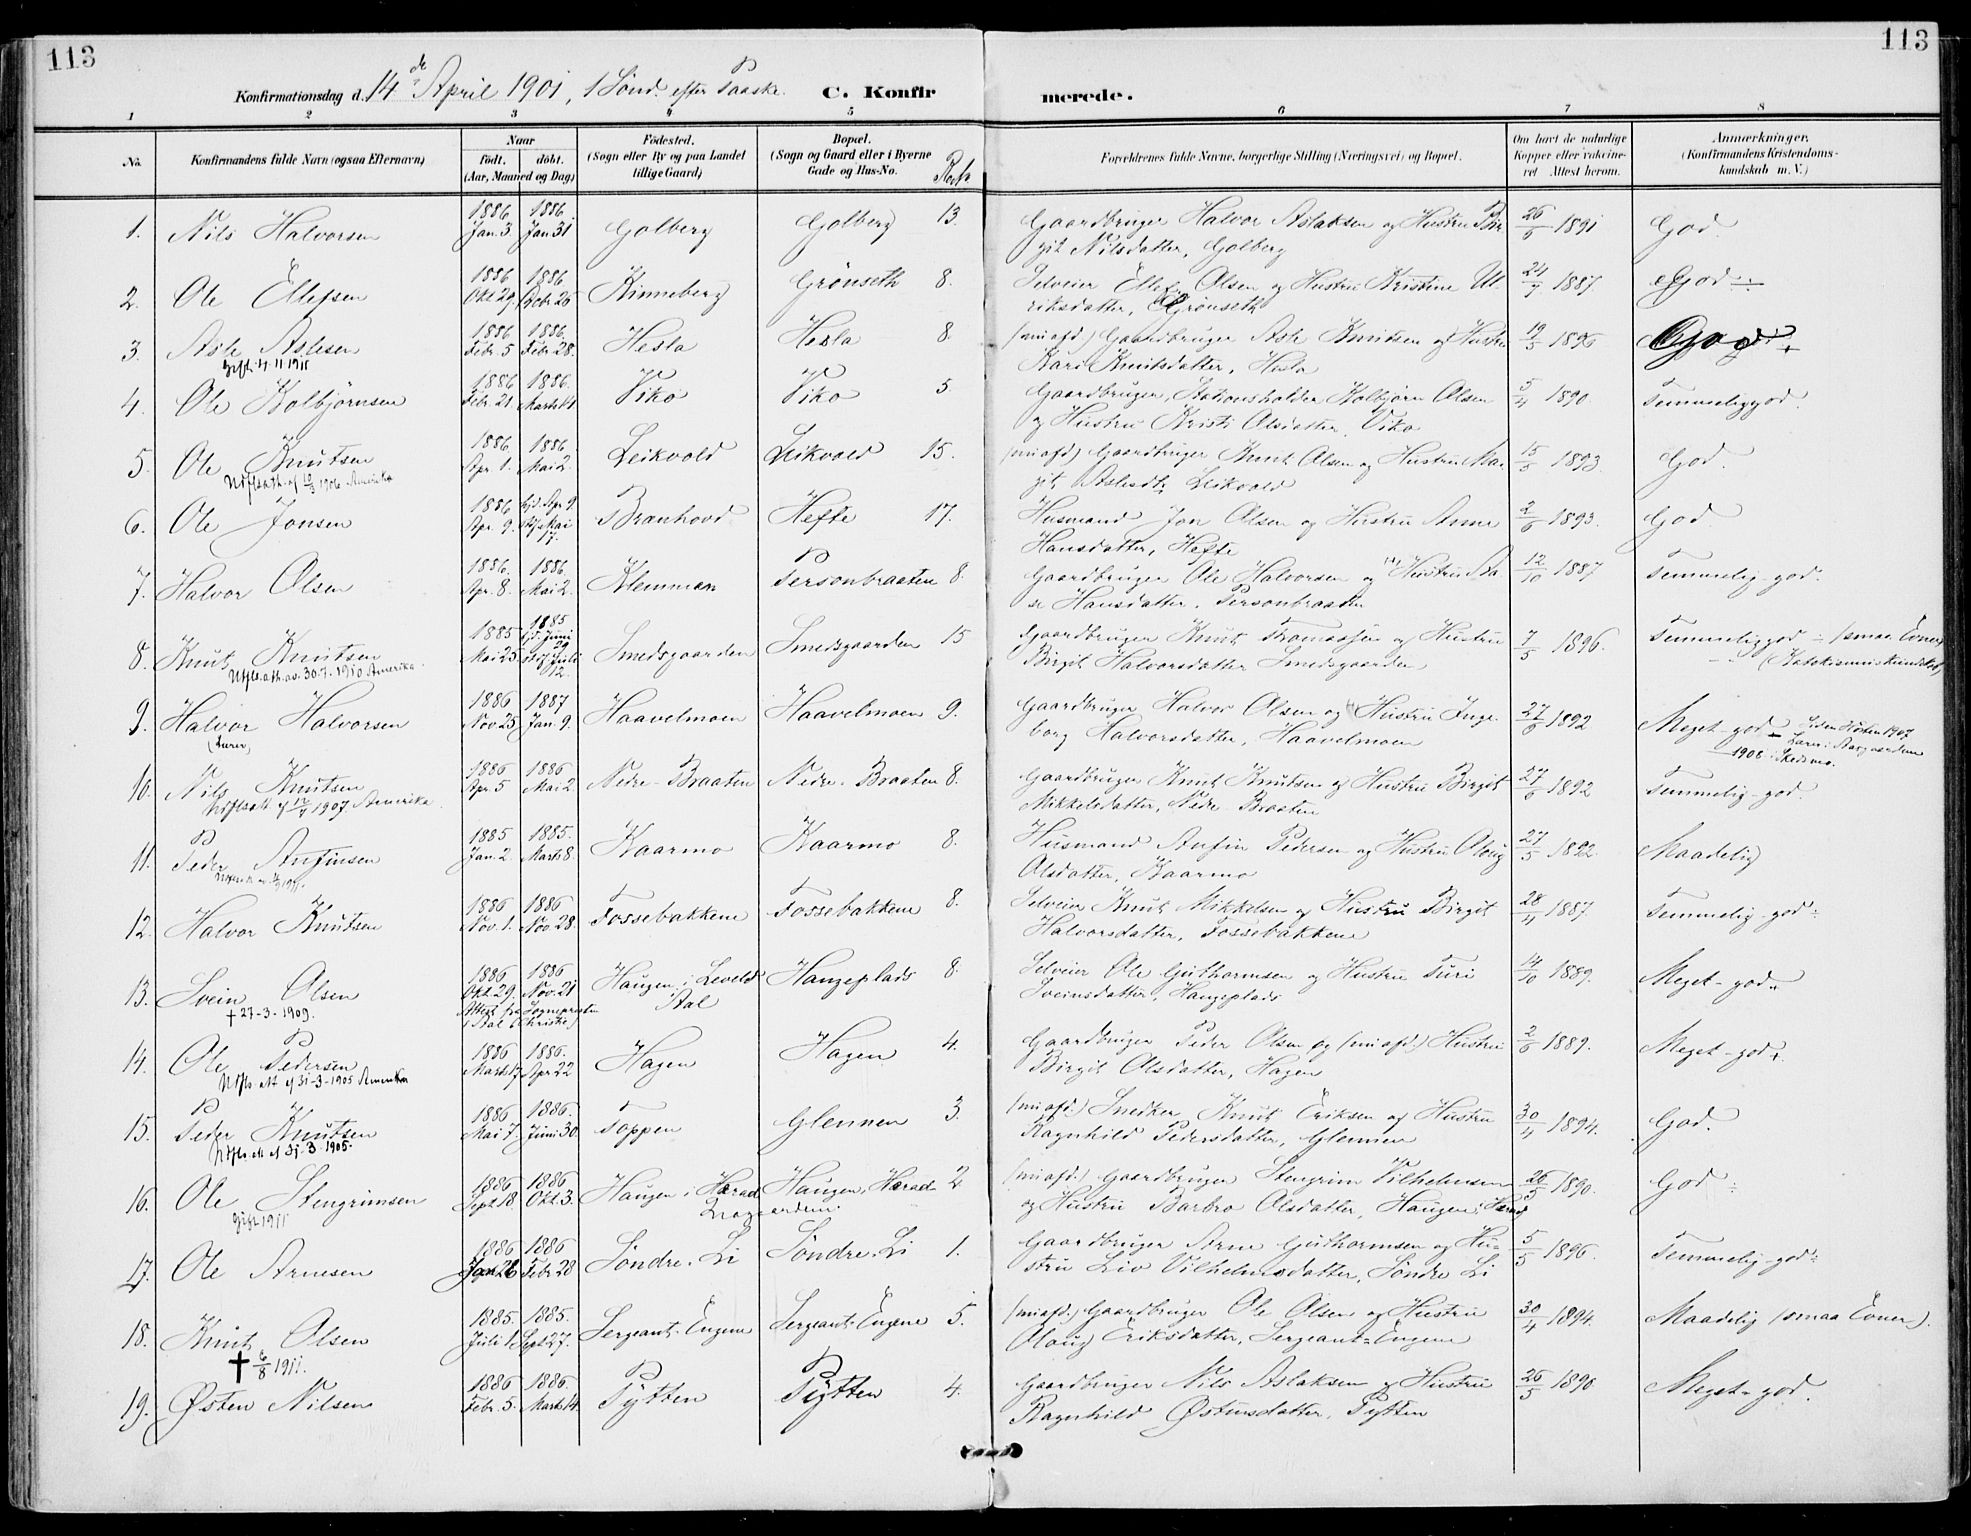 113
113
Konfirmationsdag d. 14de April 1901, 1 Sönd. efter Paaske.
C. Konfir
merede.
1 2 3 4 5 6 7 8
No. Konfirmandens fulde Navn (ogsaa Efternavn)
Naar födt. döbt. (Aar, Maaned og Dag)
Födested. (Sogn eller By og paa Landet tillige Gaard)
Bopæl. (Sogn og Gaard eller i Byerne Gade og Hus-No.
Forældrenes fulde Navne, borgerlige Stilling (Næringsvei) og Bopæl.
Om havt de naturlige Kopper eller vakcineret Attest herom.
Anmærkninger. (Konfirmandens Kristendomskundskab m. V.)
1. Nils Halvorsen 1886 Jan. 3. 1886 Jan 31 Golberg Golberg 13. Gaardbruger Halvor Aslaksen og Hustru Bir- 26/6 1891 God.
git Nilsdatter, Golberg
2. Ole Ellefsen 1886 Okt 29. 1886 Kinneberg Grönseth 8. Selveier Ellef Olsen og Hustru Kristine Ul- 24/7 1887. God ÷
riksdatter, Grönseth
3. Asle Aslesen 1886 Febr. 5 1886. Febr. 28. Hesla Hesla 8. (nu afd.) Gaardbruger Asle Knutsen og Hustru 19/5 God
Gift 4-11 1911 Kari Knutsdatter, Hesla
4. Ole Kolbjörnsen 1886 Febr. 21. 1886. Marts 14 Viko Viko 5. Gaardbruger, Stationsholder Kolbjörn Olsen 5/4 1890. Temmelig god.
og Hustru Kristi Olsdatter, Viko
5. Ole Knutsen 1886 Apr. 1. 1886. Mai 2. Leikvold Leikvold 15. (nu afd.) Gaardbruger Knut Olsen og Hustru Mar- 15/5 1893. God.
Utflsath. af 10/3 1906 Amerika git Aslesdtr. Leikvold
6. Ole Jonsen 1886 Apr. 9. hjd. Apr 9. stf. Mai 17. Branhovd Hefte 17. Husmand Jon Olsen og Hustru Anne 2/6 1893. God.
Hansdatter, Hefte
7. Halvor Olsen 1886. Apr. 8. 1886. Mai 2. Klemman Personbraaten 8. Gaardbruger Ole Halvorsen og Hustru Aa- 12/10 1887 Temmelig-god.
se Hansdatter, Personbraaten
8. Knut Knutsen 1885 Mai 25 1885 hjd. Juni 29 stf. Juli 12. Smedsgaarden Smedsgaarden 15 Gaardbruger Knut Tomassen og Hustru 7/5 1896. Temmelig god ÷ (smaa Evner)
Utfls.ath. av. 30.7.1910 Amerika. Birgit Halvorsdatter Smedsgaarden (Katekismuskundskab)
9. Halvor Halvorsen 1886 Nov 25 1887 Jan. 9. Haavelmoen Haavelmoen 9. Gaardbruger Halvor Olsen og Hustru Inge- 27/6 1892 Meget-god Siden Hösten 1907
(Lærer) borg Halvorsdatter, Haavelmoen 1908
10. Nils Knutsen 1886 Apr. 5 1886 Mai 2 Nedre-Braaten Nedre-Braaten 8. Gaardbruger Knut Knutsen og Hustru Birgit 27/6 1892 Temmelig-god.
Utflsatt af 12/4 1907 Amerika. Mikkelsdatter, Nedre-Braaten
11. Peder Anfinsen 1885 Jan. 2. 1885. Marts 8. Kaarmo Kaarmo 8. Husmand Anfin Pedersen og Hustru Oloug 27/5 1892. Maadelig
Olsdatter, Kaarmo
12. Halvor Knutsen 1886 Nov. 1. 1886 Nov. 28. Fossebakkene Fossebakkene 8. Selveier Knut Mikkelsen og Hustru Birgit 28/4 1887. Temmelig-god ÷
Halvorsdatter, Fossebakkene
13. Svein Olsen 1886 Okt. 29. 1886 Nov. 21 Haugen i Leveld Aal Haugeplads 8. Selveier Ole Guthormsen og Hustru Turi 14/10 1889. Meget-god
† 27-3-1909. Attest fra Sognepresten i Aal (Christie) Sveinsdatter, Haugeplads
14. Ole Pedersen 1886 Marts 17 1886. Apr 22 Hagen Hagen 4. Gaardbruger Peder Olsen og (nu afd.) Hustru 2/6 1889. Meget-god
Utfls. Att af 31-3-1905 Amerika Birgit Olsdatter, Hagen
15. Peder Knutsen 1886 Mai 7. 1886. Juni 30. Toppen Glennen 3. (nu afd.) Snedker Knut Eriksen og Hustru 30/4 1894. God.
Utfls. att af 31-3-1905. Ragnhild Pedersdatter, Glennen
16. Ole Stengrimsen 1886 Sept 18. 1886 Okt. 3. Haugen i Herad Haugen, Herad 2 (nu afd.) Gaardbruger Stengrim Vilhelmsen 26/5 1890. God ÷
Gift 1911 og Hustru Barbro Olsdatter, Haugen i Herad
17. Ole Arnesen 1886 Jan 26 1886 Febr 28 Söndre-Li Söndre-Li 1. Gaardbruger Arne Guthormsen og Hu- 5/5 1896. Temmelig-god ÷
stru Liv Vilhelmsdatter, Söndre Li
18. Knut Olsen 1885. Juli 1. 1885. Sept 27. Sergeant-Eugene Sergeant-Eugene 5. (nu afd.) Gaardbruger Ole Olsen og Hustru 30/4 1894. Maadelig (smaa Evner).
✝ 6/8 1911. Oloug Eriksdatter, Sergeant-Eugene
19. Østen Nilsen 1886 Febr. 5. 1886. Marts 14. Pytten Pytten 4. Gaardbruger Nils Aslaksen og Hustru 26/5 1890 Meget-god.
Ragnhild Østensdatter, Pytten